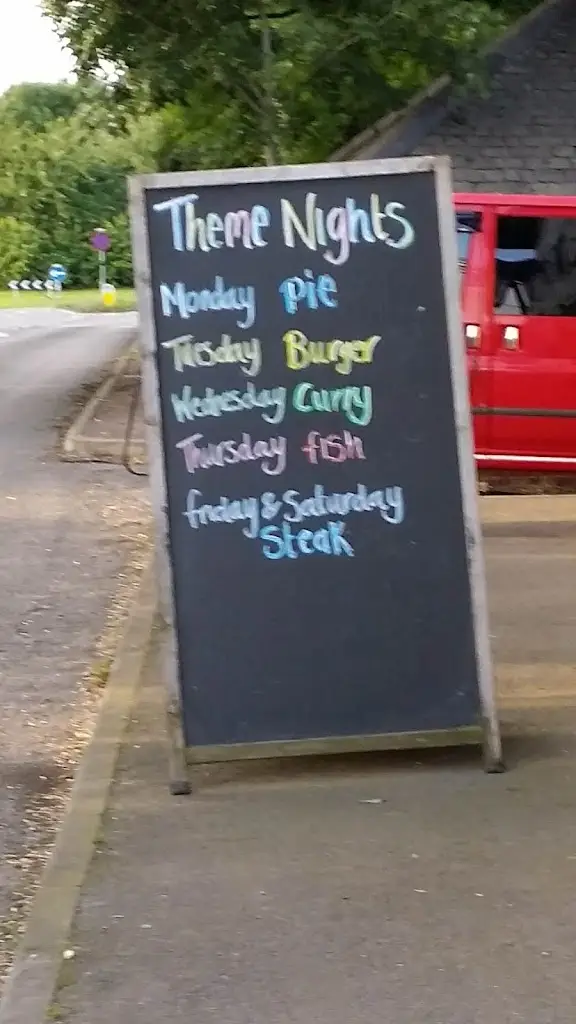 Theme Nights
Monday Pie
Tuesday Burger
Wednesday Curry
Thursday fish
friday & Saturday
Steak